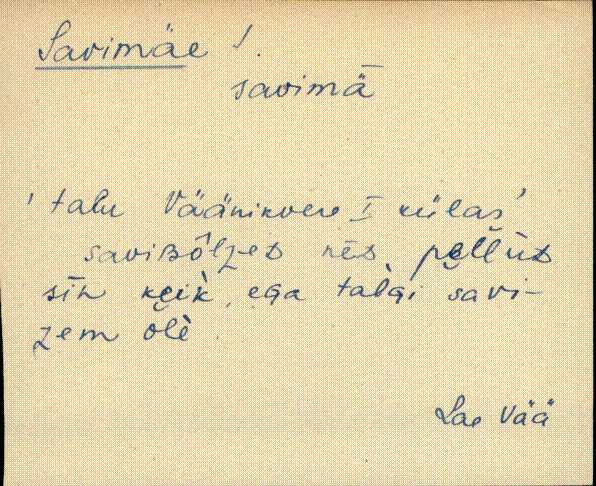 Savimäe I.
savimǟ
'talu Väänikvere I külas'
savisȏlʒed nēd pellūD
sīn keik, ega talgi savi-
ʒem ȯlè.
Lae Vää